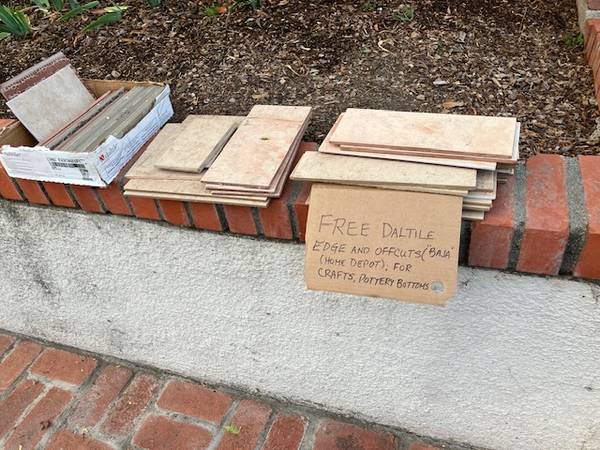 FREE DALTILE
EDGE AND OFFCUTS ("BAJA"
(HOME DEPOT), FOR
CRAFTS, POTTERY BOTTOMS